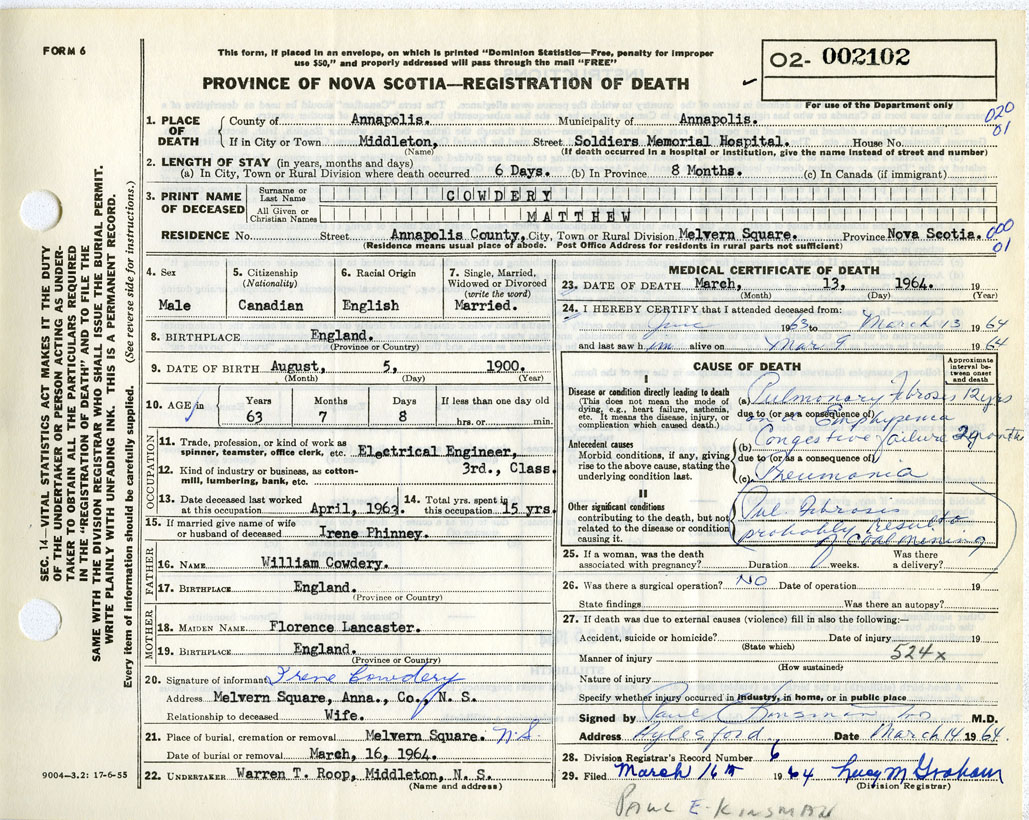 FORM 6
This form, if placed in an envelope, on which is printed "Dominion Statistics—Free, penalty for improper
use $50," and properly addressed will pass through the mail "FREE"
PROVINCE OF NOVA SCOTIA—REGISTRATION OF DEATH
O2- 002102
For use of the Department only
020
01
1. PLACE OF DEATH
County of Annapolis. Municipality of Annapolis.
If in City or Town Middleton, Street Soldiers Memorial Hospital. House No.
(Name) (If death occurred in a hospital or institution, give the name instead of street and number)
2. LENGTH OF STAY (in years, months and days)
(a) In City, Town or Rural Division where death occurred 6 Days. (b) In Province 8 Months. (c) In Canada (if immigrant)
3. PRINT NAME OF DECEASED
Surname or Last Name COWDERY
All Given or Christian Names MATTHEW
RESIDENCE No. Street Annapolis County, City, Town or Rural Division Melvern Square. Province Nova Scotia.
(Residence means usual place of abode. Post Office Address for residents in rural parts not sufficient)
000
01
4. Sex
Male
5. Citizenship
(Nationality)
Canadian
6. Racial Origin
English
7. Single, Married,
Widowed or Divorced
(write the word)
Married.
8. BIRTHPLACE England.
(Province or Country)
9. DATE OF BIRTH August, 5, 1900.
(Month) (Day) (Year)
10. AGE in
Years Months Days If less than one day old
63 7 8 hrs. or min.
OCCUPATION
11. Trade, profession, or kind of work as
spinner, teamster, office clerk, etc. Electrical Engineer,
12. Kind of industry or business, as cotton- 3rd., Class.
mill, lumbering, bank, etc.
13. Date deceased last worked
at this occupation April, 1963.
14. Total yrs. spent in
this occupation 15 yrs.
15. If married give name of wife
or husband of deceased Irene Phinney.
FATHER
16. NAME William Cowdery.
17. BIRTHPLACE England.
(Province or Country)
MOTHER
18. MAIDEN NAME Florence Lancaster.
19. BIRTHPLACE England.
(Province or Country)
20. Signature of informant Irene Cowdery
Address Melvern Square, Anna., Co., N. S.
Relationship to deceased Wife.
21. Place of burial, cremation or removal Melvern Square. N.S.
Date of burial or removal March, 16, 1964.
22. UNDERTAKER Warren T. Roop, Middleton, N. S.
(Name and address)
MEDICAL CERTIFICATE OF DEATH
23. DATE OF DEATH March, 13, 1964. 19
(Month) (Day) (Year)
24. I HEREBY CERTIFY that I attended deceased from:
June 1963 to March 13 1964
and last saw him alive on Mar 9 1964
CAUSE OF DEATH
Approximate
interval be-
tween onset
and death
I
Disease or condition directly leading to death
(This does not mean the mode of
dying, e.g., heart failure, asthenia,
etc. It means the disease, injury, or
complication which caused death.)
(a) Pulmonary Fibrosis 12 yrs
due to (or as a consequence of)
Emphysema
Antecedent causes
Morbid conditions, if any, giving
rise to the above cause, stating the
underlying condition last.
(b) Congestive failure 2 months
due to (or as a consequence of)
(c) Pneumonia
II
Other significant conditions
contributing to the death, but not
related to the disease or condition
causing it.
Pul. Fibrosis
probably result
of Coal Mining
25. If a woman, was the death
associated with pregnancy? Duration weeks. Was there
a delivery?
26. Was there a surgical operation? NO Date of operation 19
State findings Was there an autopsy?
27. If death was due to external causes (violence) fill in also the following:—
Accident, suicide or homicide? Date of injury 19
(State which)
524x
Manner of injury
(How sustained)
Nature of injury
Specify whether injury occurred in industry, in home, or in public place
Signed by Paul E Kinsman M.D.
Address Aylesford Date March 14 1964.
28. Division Registrar's Record Number 6
29. Filed March 16th 1964 Lucy M Graham
(Division Registrar)
PAUL E. KINSMAN
SEC. 14—VITAL STATISTICS ACT MAKES IT THE DUTY
OF THE UNDERTAKER OR PERSON ACTING AS UNDER-
TAKER TO OBTAIN ALL THE PARTICULARS REQUIRED
IN THE "REGISTRATION OF DEATH" AND TO FILE THE
SAME WITH THE DIVISION REGISTRAR WHO SHALL ISSUE THE BURIAL PERMIT.
WRITE PLAINLY WITH UNFADING INK. THIS IS A PERMANENT RECORD.
Every item of information should be carefully supplied. (See reverse side for instructions.)
9004—3.2: 17-6-55